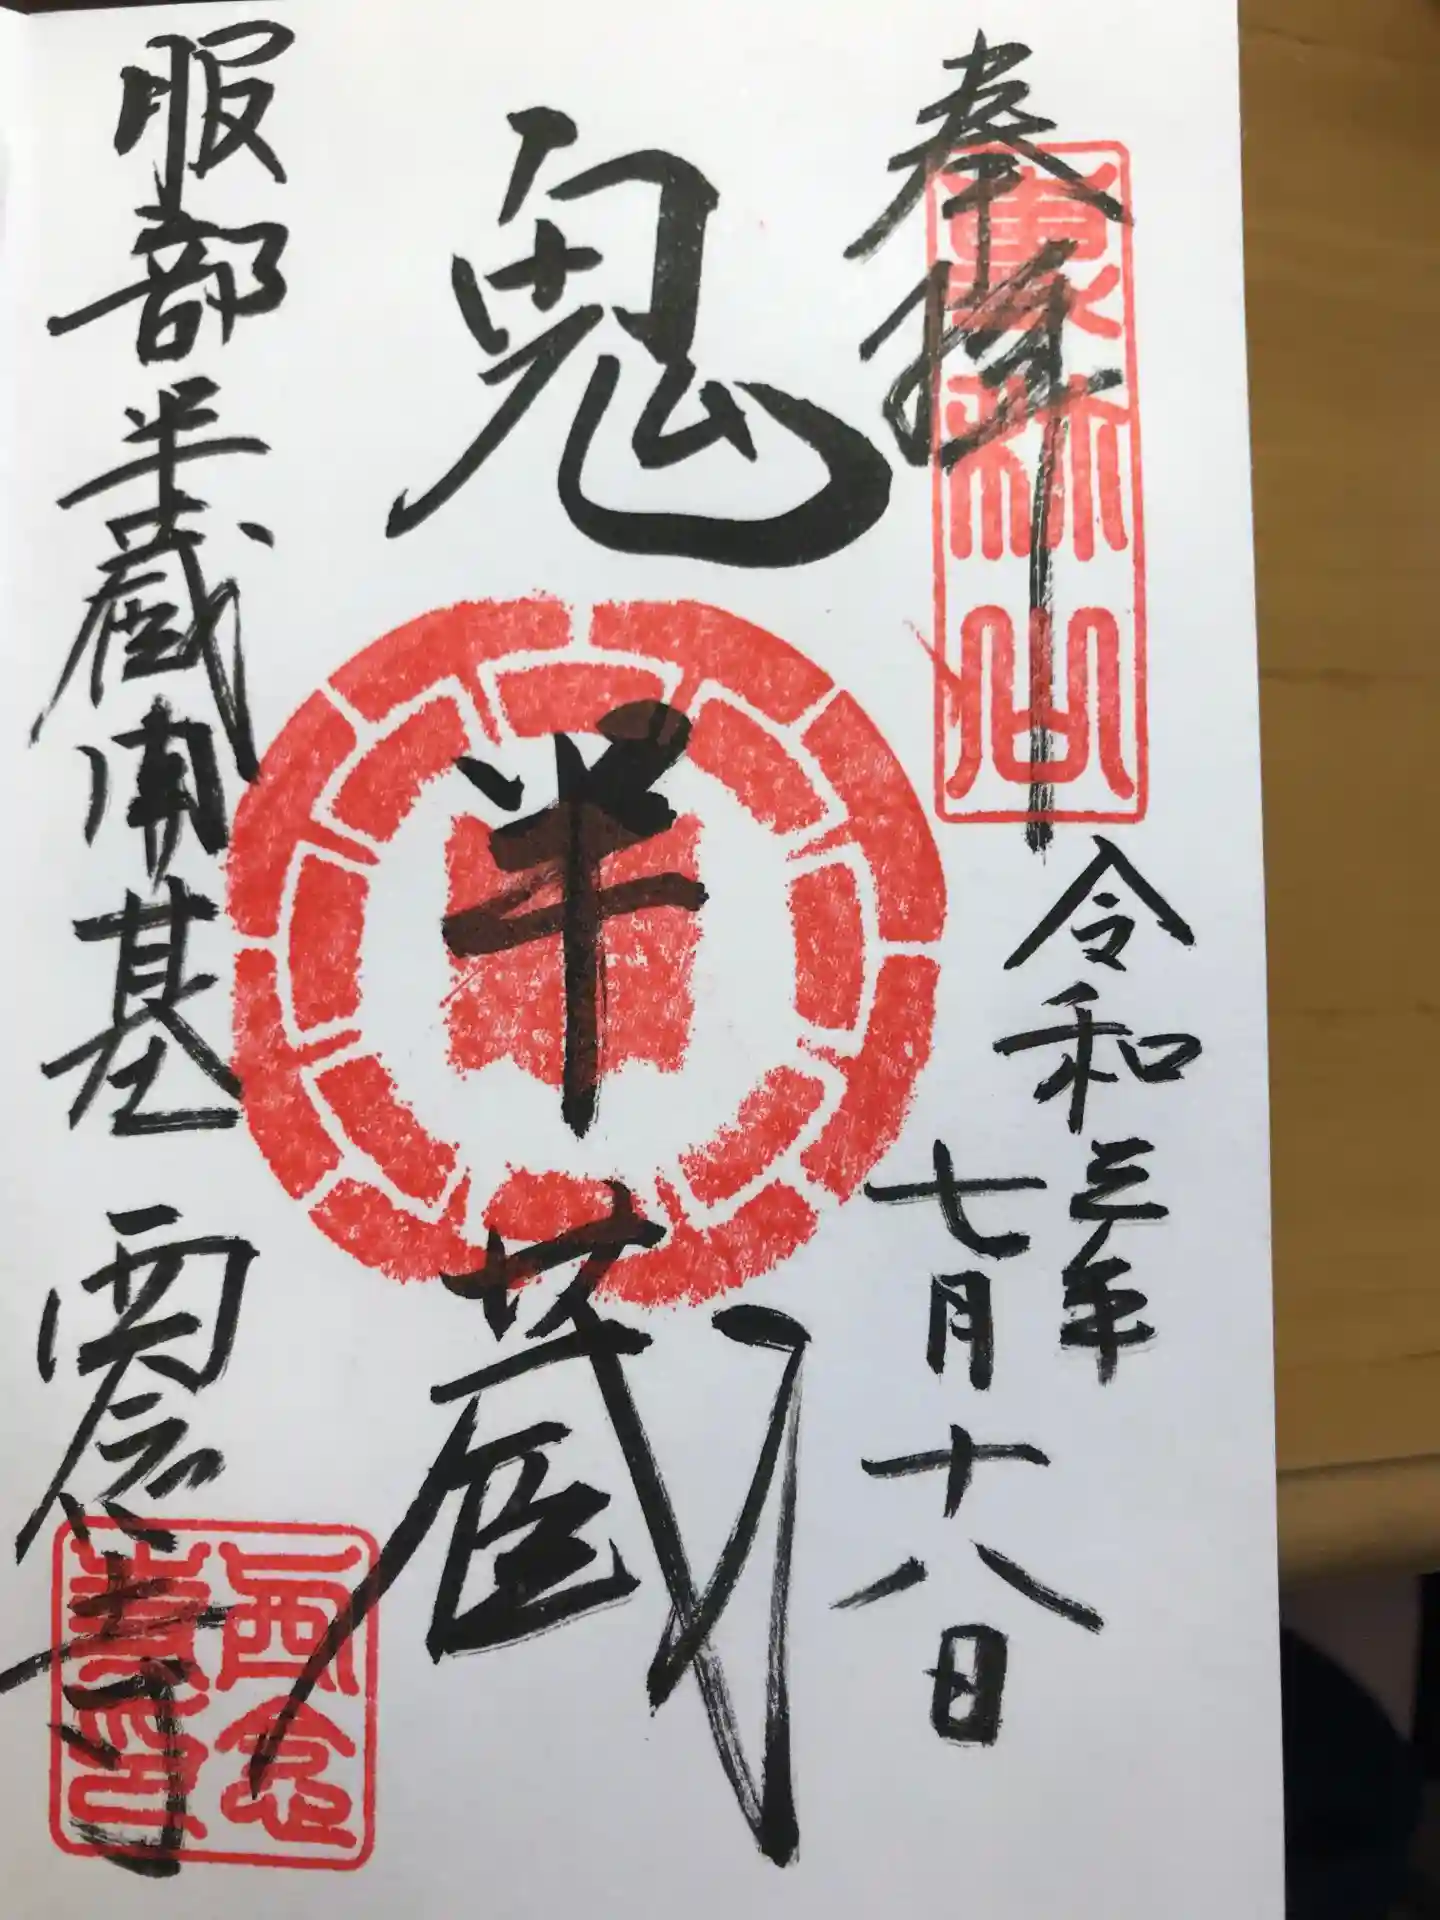 奉拝
専称山
令和三年
七月十八日
鬼
半
蔵
服部半蔵開基
西念寺
西念
寺印